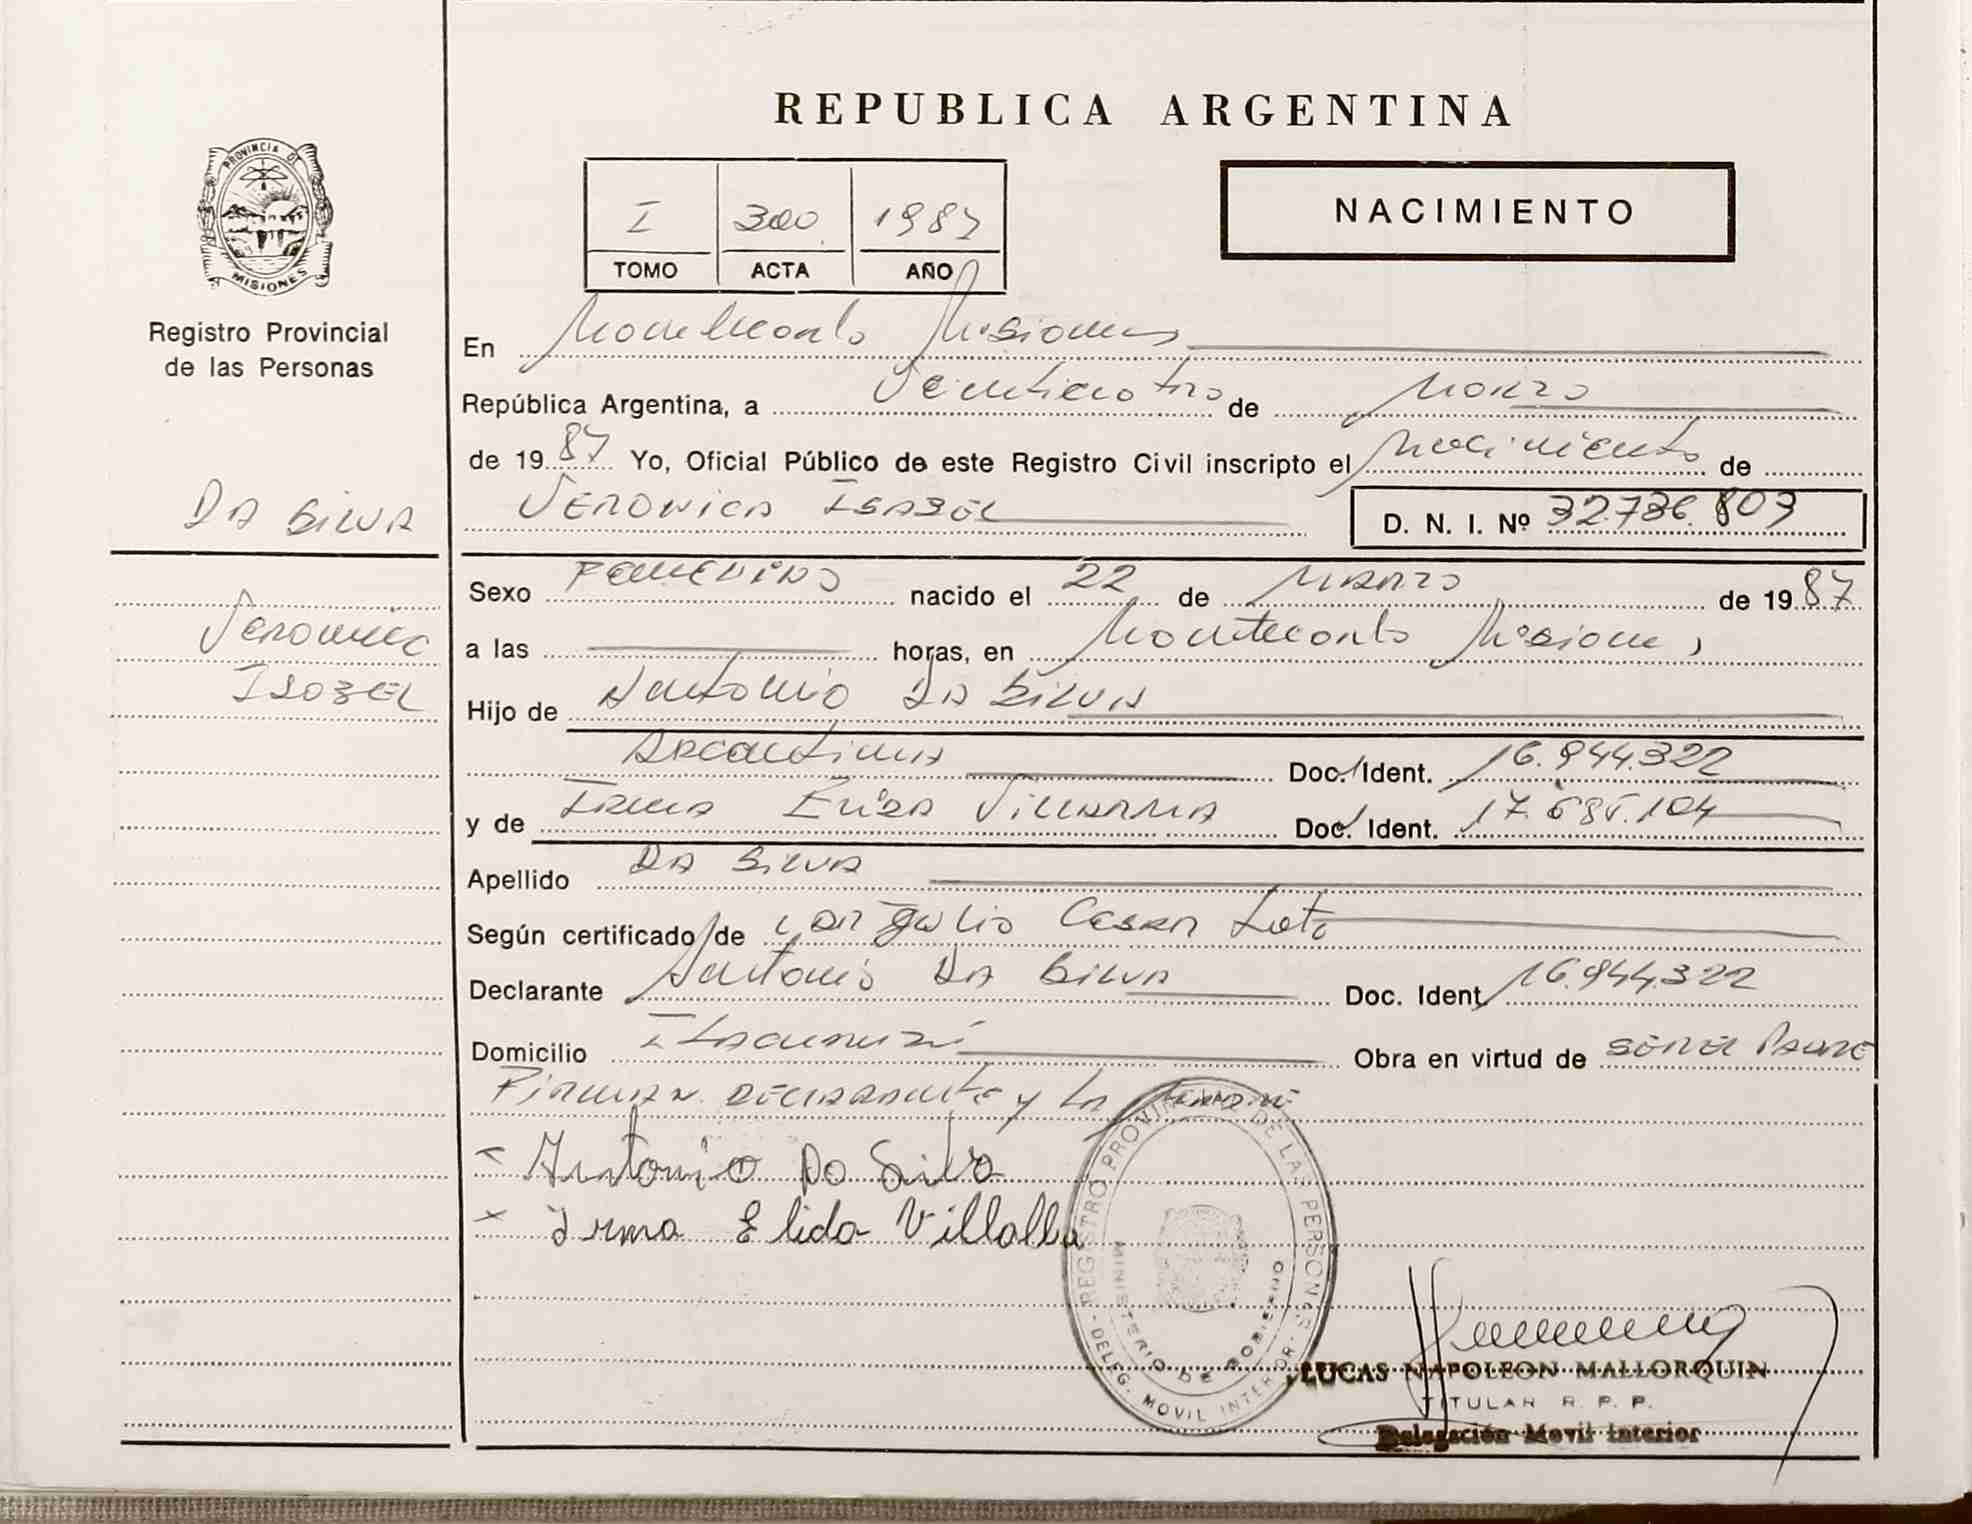 REPUBLICA ARGENTINA
PROVINCIA DE
MISIONES
Registro Provincial
de las Personas
I 300 1987
TOMO ACTA AÑO
NACIMIENTO
En Montecarlo Misiones
República Argentina, a Veinticuatro de Marzo
de 1987 Yo, Oficial Público de este Registro Civil inscripto el Nacimiento de
VERONICA ISABEL
D. N. I. Nº 32.736.803
DA SILVA
Veronica
ISABEL
Sexo FEMENINO nacido el 22 de MARZO de 1987
a las horas, en Montecarlo Misiones,
Hijo de Antonio DA SILVA
ARGENTINA Doc. Ident. 16.944.322
y de IRMA ELIDA VILLALBA Doc. Ident. 17.685.104
Apellido DA SILVA
Según certificado de Julio Cesar
Declarante Antonio DA SILVA Doc. Ident. 16.944.322
Domicilio Obra en virtud de SER EL PADRE
FIRMAN DECLARANTE y LA MADRE
- Antonio Da Silva
x Irma Elida Villalba
REGISTRO PROVINCIAL DE LAS PERSONAS
MINISTERIO DE GOBIERNO
- DELEG. MOVIL INTERIOR -
LUCAS NAPOLEON MALLORQUIN
TITULAR R. P. P.
Delegación Movil Interior